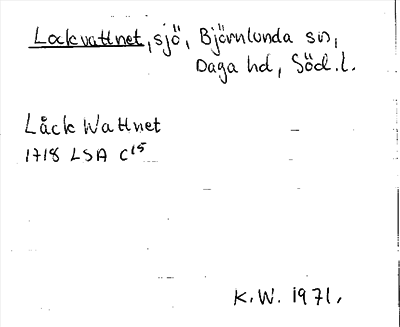 Lockvattnet, sjö, Björnlunda sn,
Daga hd, Söd. l.
Låck Wattnet
1718 LSA C15
K.W. 1971.